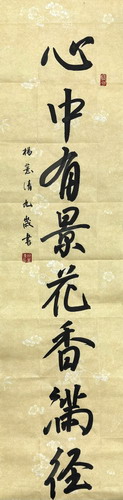 心中有景花香满径
杨意清九岁书